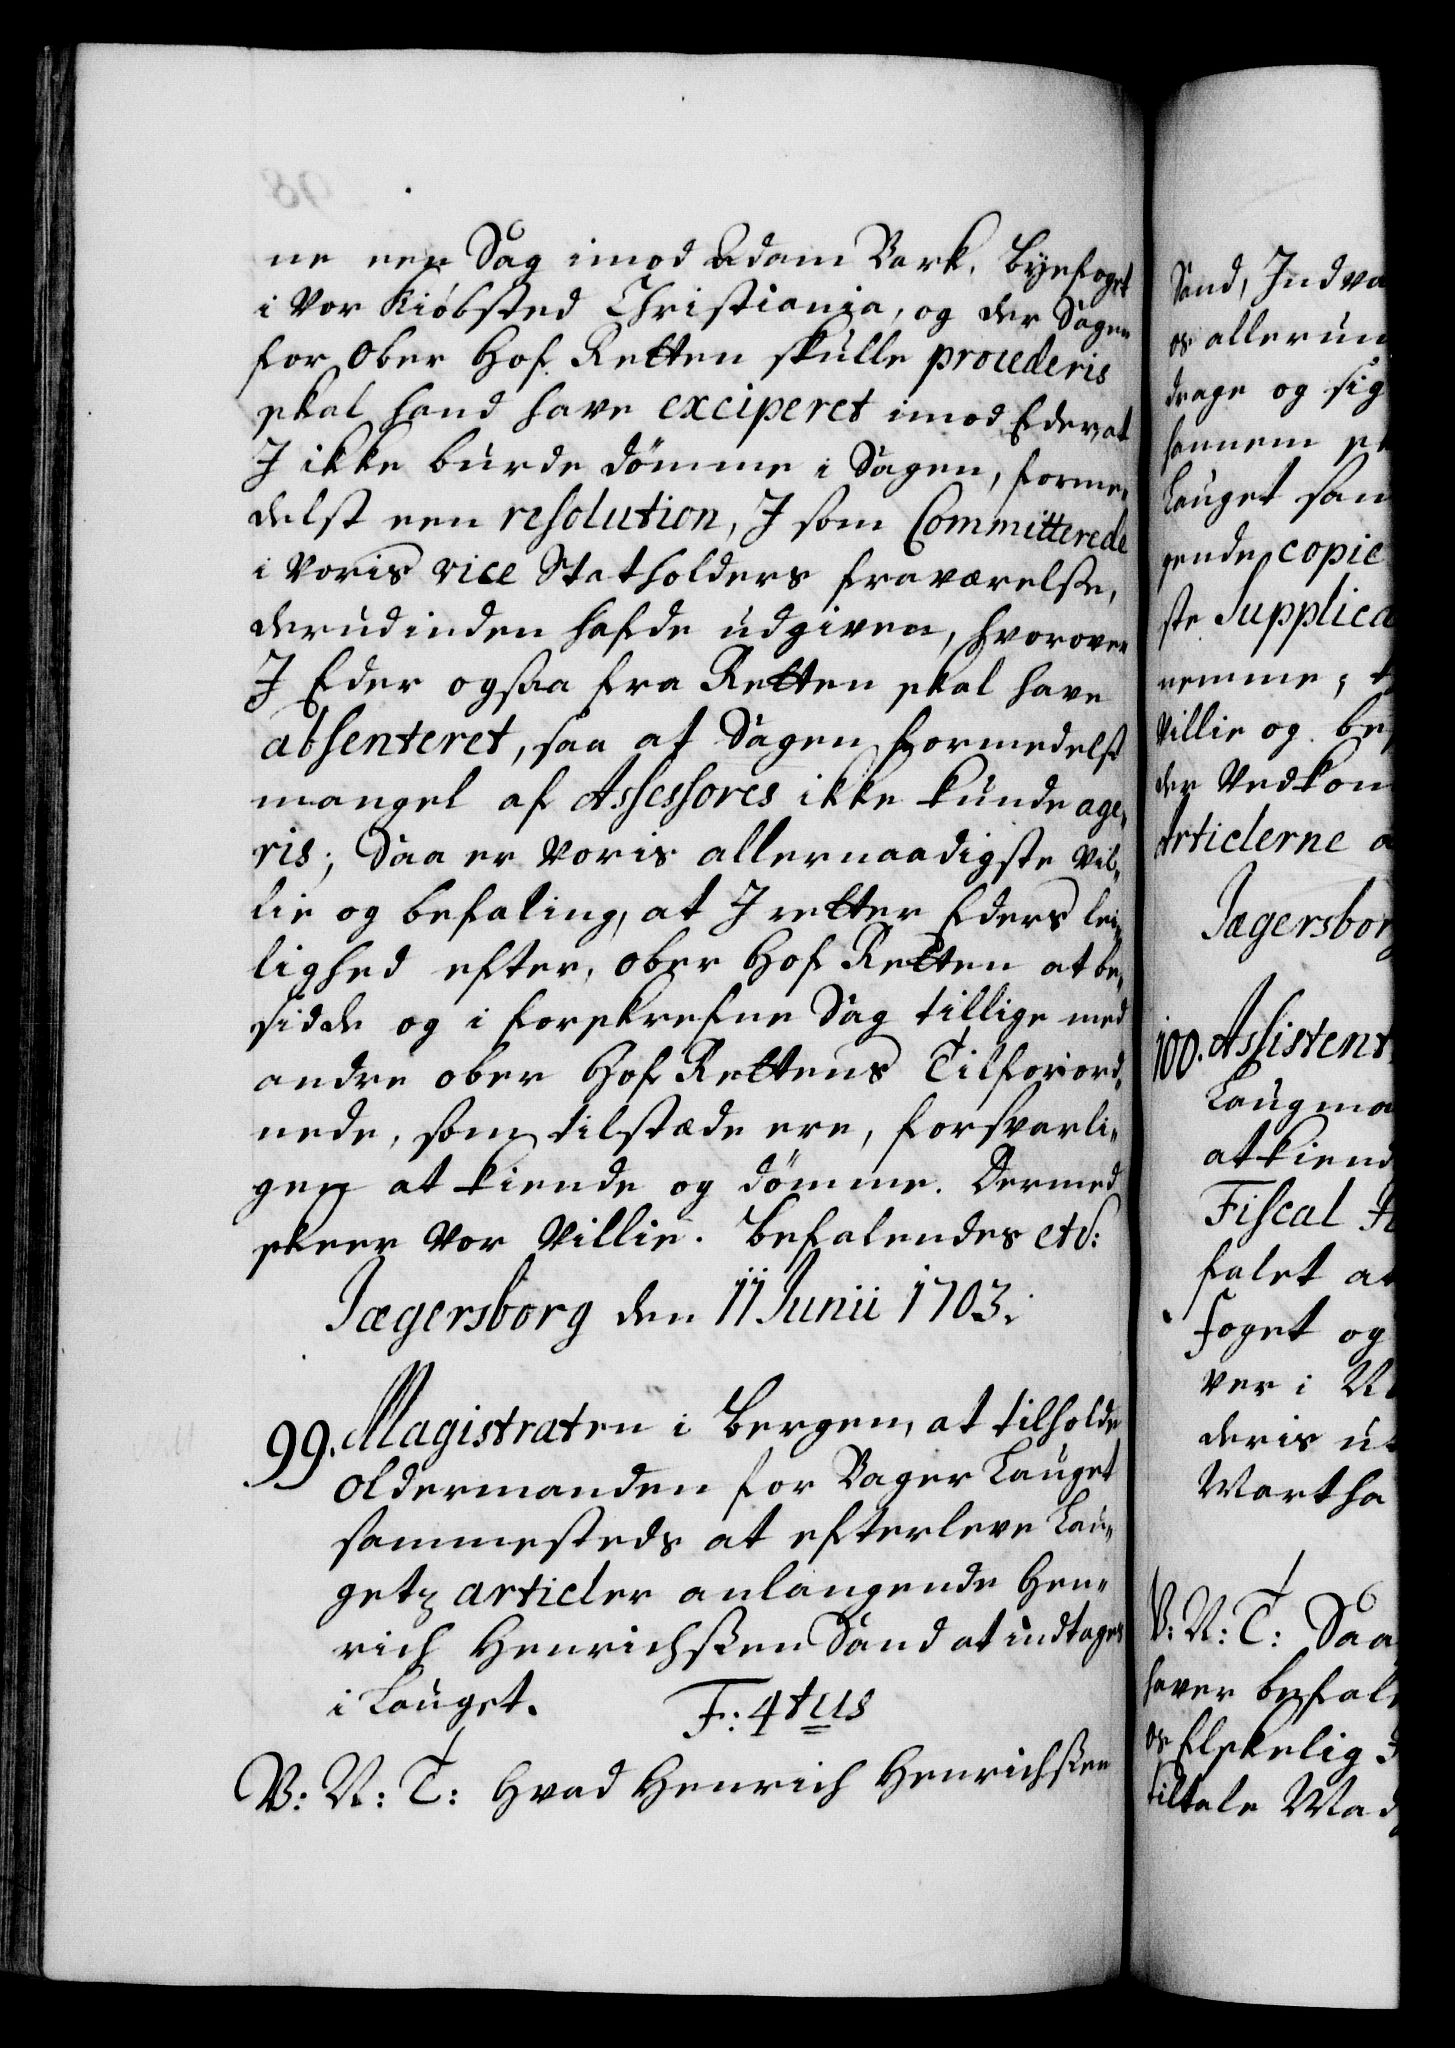 ne een Sag imod Adam Bark, byefoget
i Vor Kiöbsted Christiania, og der Sagen
for Ober Hof Retten skulle procederis
skal hand have exciperet imod Eder at
J ikke burde dömme i Sagen, forme„
delst een resolution, J som Committerede
i Voris vice Statholders fraværelse,
derudinden hafde udgiven, hvorover
J Eder ogsaa fra Retten skal have
absenteret, saa at Sagen formedelst
mangel af Assessores ikke kunde age„
ris; Saa er Voris allernaadigste Vil„
lie og befaling, at J retter Eders lei„
lighed efter, Ober Hof Retten at be„
sidde og i forskrefne Sag tillige med
andre Ober Hof Rettens Tilforord„
nede, som tilstæde ere, forsvarli„
gen at kiende og dömme. Dermed
skeer Vor Villie. Befalendes etc:
Jægersborg den 11 Junii 1703.
99. Magistraten i Bergen, at tilholde
Oldermanden for Bager Lauget
sammesteds at efterleve Lau„
getz articler anlangende Hen„
rich Henrichssen Sand at indtages
i Lauget.     F: 4tus
V: N: T: Hvad Henrich Henrichssen
Sand, Indva
os allerun
drage og sig
hannem
Lauget sam
gende copie
ste Supplica
nemme;
Villie og be
der Vedkom
Articlerne
Jægersborg
100. Assistent
Laugma
at kiend
Fiscal
falet at
foget og
ver i
deris
Martha
V: N: T: Saa
haver befal
os Elskelig
tiltale Mad